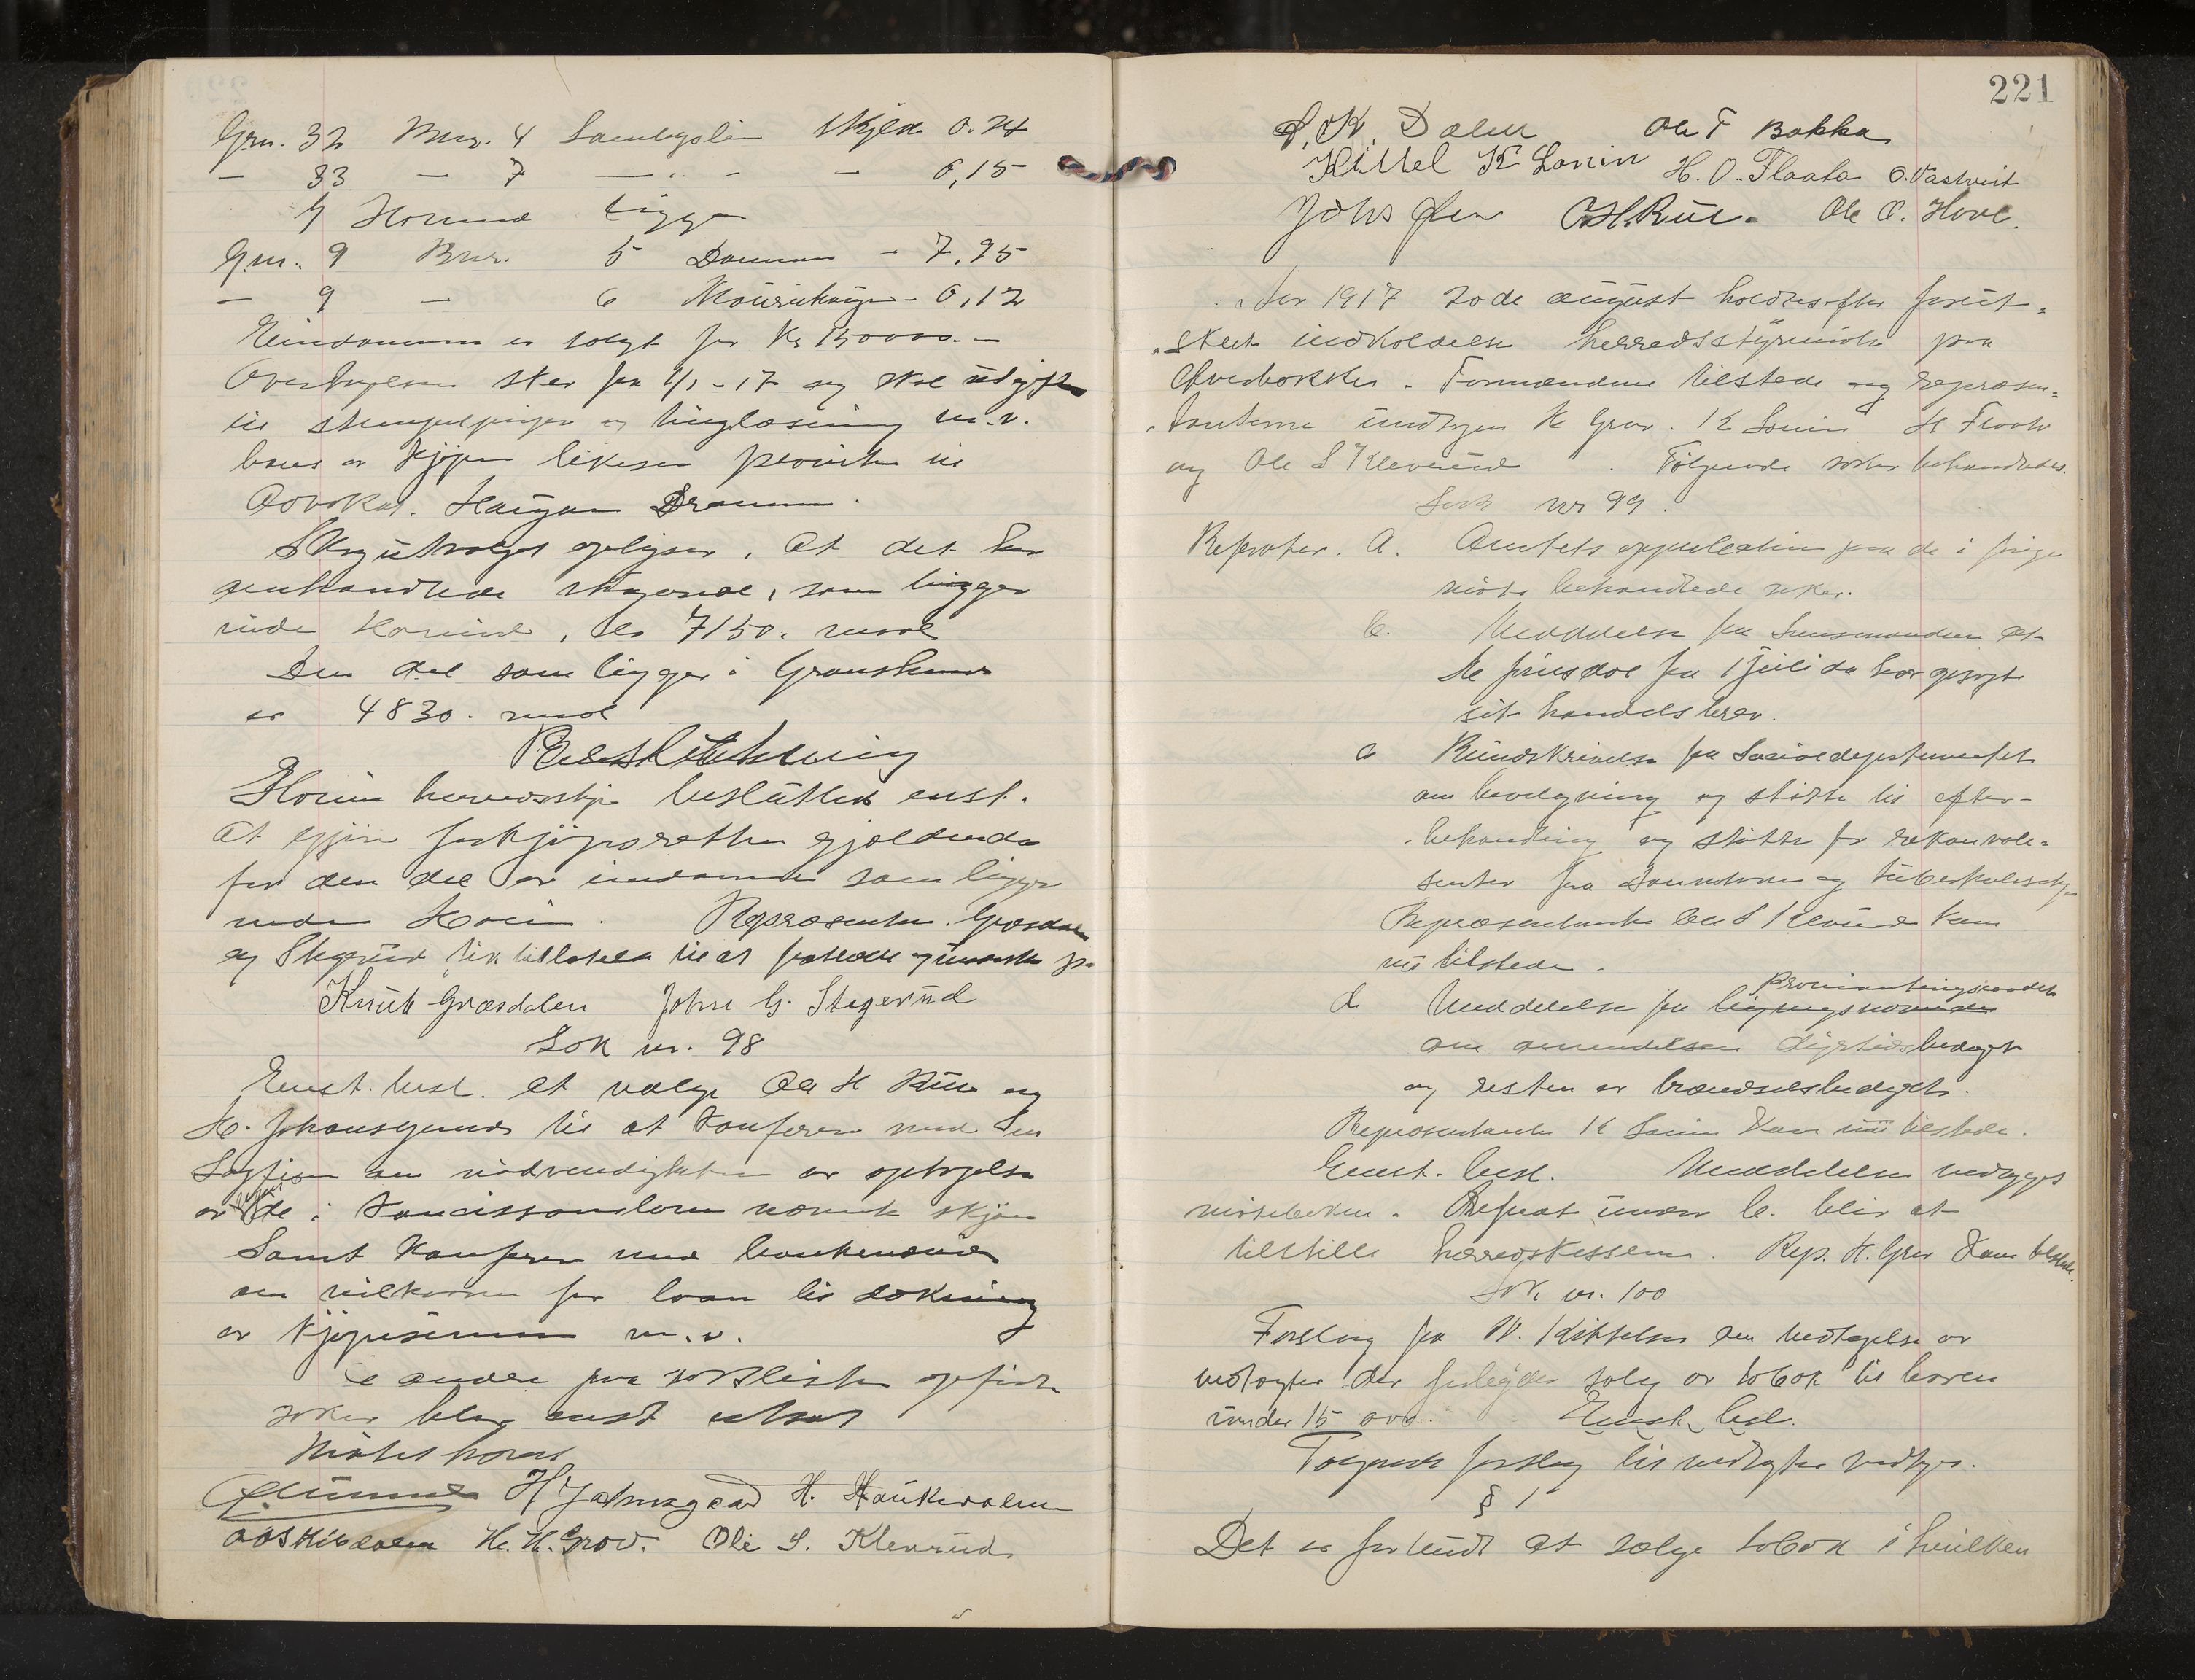 Grn. 32 Bnr. 4 Sameyslie skyld 0.24
— 33 — 7 — " — — 0,15
I Hovind ligger
Gnr. 9 Bnr. 5 — 7,95
— 9 — 6 — 0,12
Eiendommen er solgt for Kr 150000.—
Overtagelsen sker fra 1/1-17 og skal utgifter
til stempelpenger og tinglæsning m.v.
bæres av kjøper likesaa provision til
Advokat Haugan Drammen.
Skogutvalget oplyser, at det her
omhandlede skogareal, som ligger
under Hovind, er 7150. maal
Den del som ligger i Gransherred
er 4830. maal
Beslutning
Hovin herredsstyre besluttet enst.
at gjøre forkjøpsretten gjældende
for den del av eiendommen som ligger
under Hovin. Repræsentanterne Græsdalen
og Stegerud fik tillatelse til at fratræde
Knut Græsdalen John G. Stegerud
Sak nr. 98
Enst. besl. at vælge Ole H Rue og
H. Johansgaard til at konferere med
om nødvendigheten av optagelse
av de i nævnte skjøn
Samt konferere med
om vilkaarene for laan til dækning
av kjøpesummen m.v.
De andre paa sakslisten opførte
saker blev enst utsat
Møtet hævet
H Jahnsgaard H. Haukedalen
H. H. Grov. Ole S. Kleverud
221
O. K. Dalen Ole T Bakka
Kittel K Lonin H. O. Flaata O. Vastveit
Johs Øen O.H. Rue. Ole O. Hove.
Aar 1917 20de august holdtes efter forut-
skeet indkaldelse herredsstyremøte paa
Øverbøkker. Formændene tilstede og repræsen-
tanterne undtagen H Grov. K Lonin H Flaata
og Ole S Kleverud. Følgende saker behandledes.
Sak nr 99.
Referater. a. Amtets approbation paa de i forrige
møte behandlede saker.
b. Meddelelse fra Lensmanden at
fra 1 juli da har opsagt
sit handelsbrev.
c Rundskrivelse fra Socialdepartementet
om bevilgning og støtte til efter-
behandling og støtte for rekonvale-
senter fra og tuberkulosehj.
Repræsentanten Ole S Kleverud kom
nu tilstede.
Provianteringsraadet
d Meddelelse fra ligningsnævnden
om anvendelsen dyrtidsbidraget
og resten av brændselsbidraget.
Repræsentanten K Lonin kom nu tilstede.
Enst. besl. Meddelelsen vedlægges
møteboken. Referat under b. blir at
tilstille herredskassereren. Rep. H. Grov kom tilstede.
Sak nr. 100
Forslag fra N. Kittelsen om vedtagelse av
vedtægter der forbyder salg av tobak til barn
under 15 aar. Enst. besl.
Følgende forslag til vedtægter vedtages.
§ 1
Det er forbudt at sælge tobak i hvilken